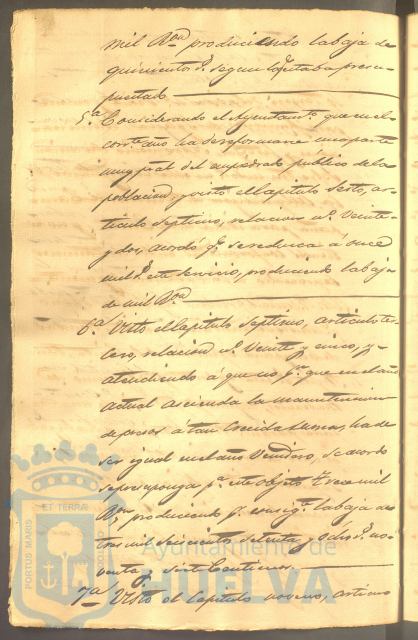 mil Rs producciendo la baja de
quinientos rs. segun lo qe. estaba presu-
puestado
5ª Considerando el Ayuntamto. que en el
corrte. año ha de reformarse una parte
muy pral del empedrado publico de la
poblacion, y visto el Capitulo Sesto, ar-
ticulo septimo, relacion nº. Veinte
y dos, acordó qe. se reduzca á once
mil rs. este servicio, produciendo la baja
de mil Rs.
6ª Visto el Capitulo Septimo, articulo ter-
cero, relacion nº. Veinte y cinco, y
atendiendo á que no pr. que en el año
actual ascienda la manutencion
de presos á tan crecida suma, ha de
ser igual en el año venidero, se acordó
se presuponga pa. este objeto trece mil
Rs, produciendo pr. consigte. la baja de
tres mil seiscientos setenta y ocho rs. no-
venta y siete Centimos.
7ª Visto el Capitulo noveno, articu
PORTUS MARIS
ET TERRAE
Ayuntamiento de
HUELVA